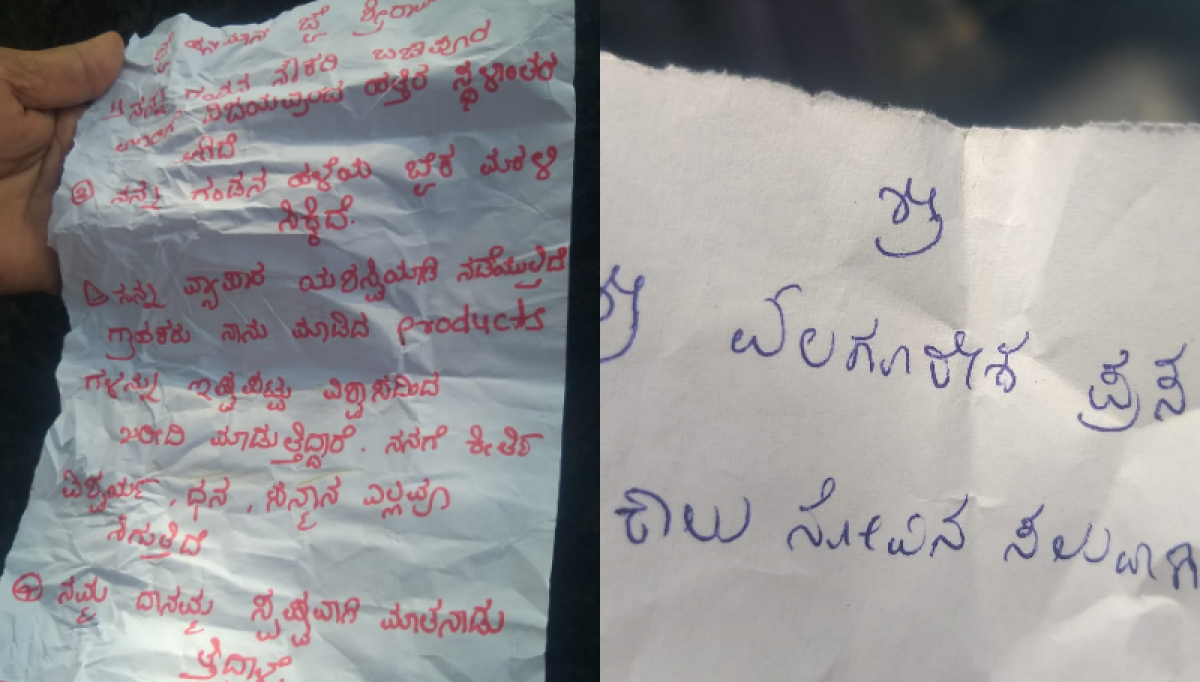 ಜೈ ಹನುಮಾನ ಜೈ ಶ್ರೀರಾಮ
ನನ್ನ ಗಂಡನ ನೌಕರಿ
ಹತ್ತಿರ ಸ್ಥಳಾಂತರ
ಆಗಿದೆ
② ನನ್ನ ಗಂಡನ ಹಳೆಯ ಬೈಕ ಮರಳಿ
ಸಿಕ್ಕಿದೆ.
ನನ್ನ ವ್ಯಾಪಾರ ಯಶಸ್ವಿಯಾಗಿ ನಡೆಯುತ್ತಿದೆ
ಗ್ರಾಹಕರು ನಾನು ಮಾಡಿದ products
ಗಳನ್ನು ಇಷ್ಟಪಟ್ಟು ವಿಶ್ವಾಸದಿಂದ
ಖರೀದಿ ಮಾಡುತ್ತಿದ್ದಾರೆ. ನನಗೆ ಕೀರ್ತಿ
ಐಶ್ವರ್ಯ, ಧನ, ಸನ್ಮಾನ ಎಲ್ಲವೂ
ಸಿಗುತ್ತಿದೆ
④ ನಮ್ಮ ದಾನಮ್ಮ ಸ್ಪಷ್ಟವಾಗಿ ಮಾತನಾಡು
ತ್ತಿದ್ದಾಳೆ
ಶ್ರೀ
ಶ್ರೀ ಯಲಗೂರೇಶ ಪ್ರಸ
ಕಾಲು ನೋವಿನ ಸಲುವಾಗಿ